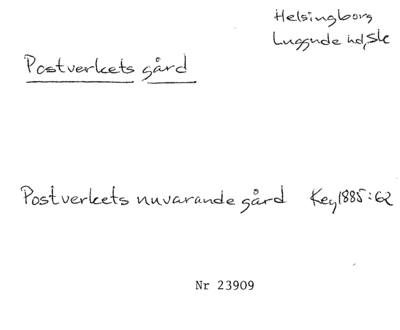 Helsingborg
Luggude hd, Sk
Postverkets gård
Postverkets nuvarande gård Key 1885:62
Nr 23909